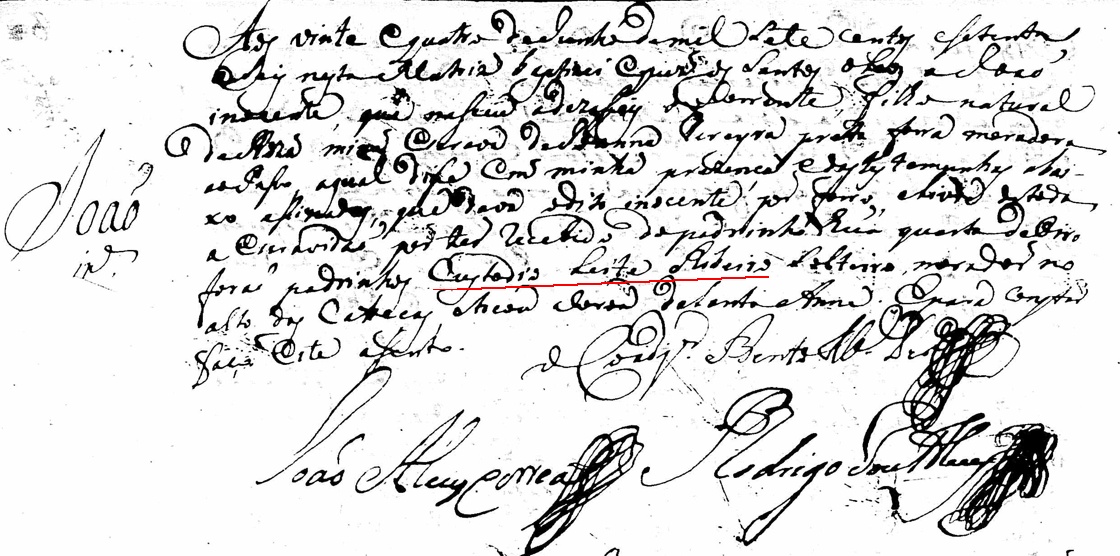 Aos vinte e quatro de Junho de mil Sete centos e setenta
e Seis nesta Matriz baptizei e puz os Santos oleos a João
inocente, que nasceu a dezaseis do corrente, filho natural
de Roza mina Escrava de Joanna Pereyra preta forra moradora
a qual disse em minha prezença e das testemunhas abai-
xo asinadas, que dava o dito inocente por forro,
a Escravidaõ por ter recebido do padrinho hũa quarta de ouro
foraõ padrinhos Custodio Leite Ribeiro Solteiro, morador no
alto das Cabeças de Santa Anna. E para constar
fas este asento.
João
in.te
o Coadj.or Bento
João Alvz Correa
Rodrigo